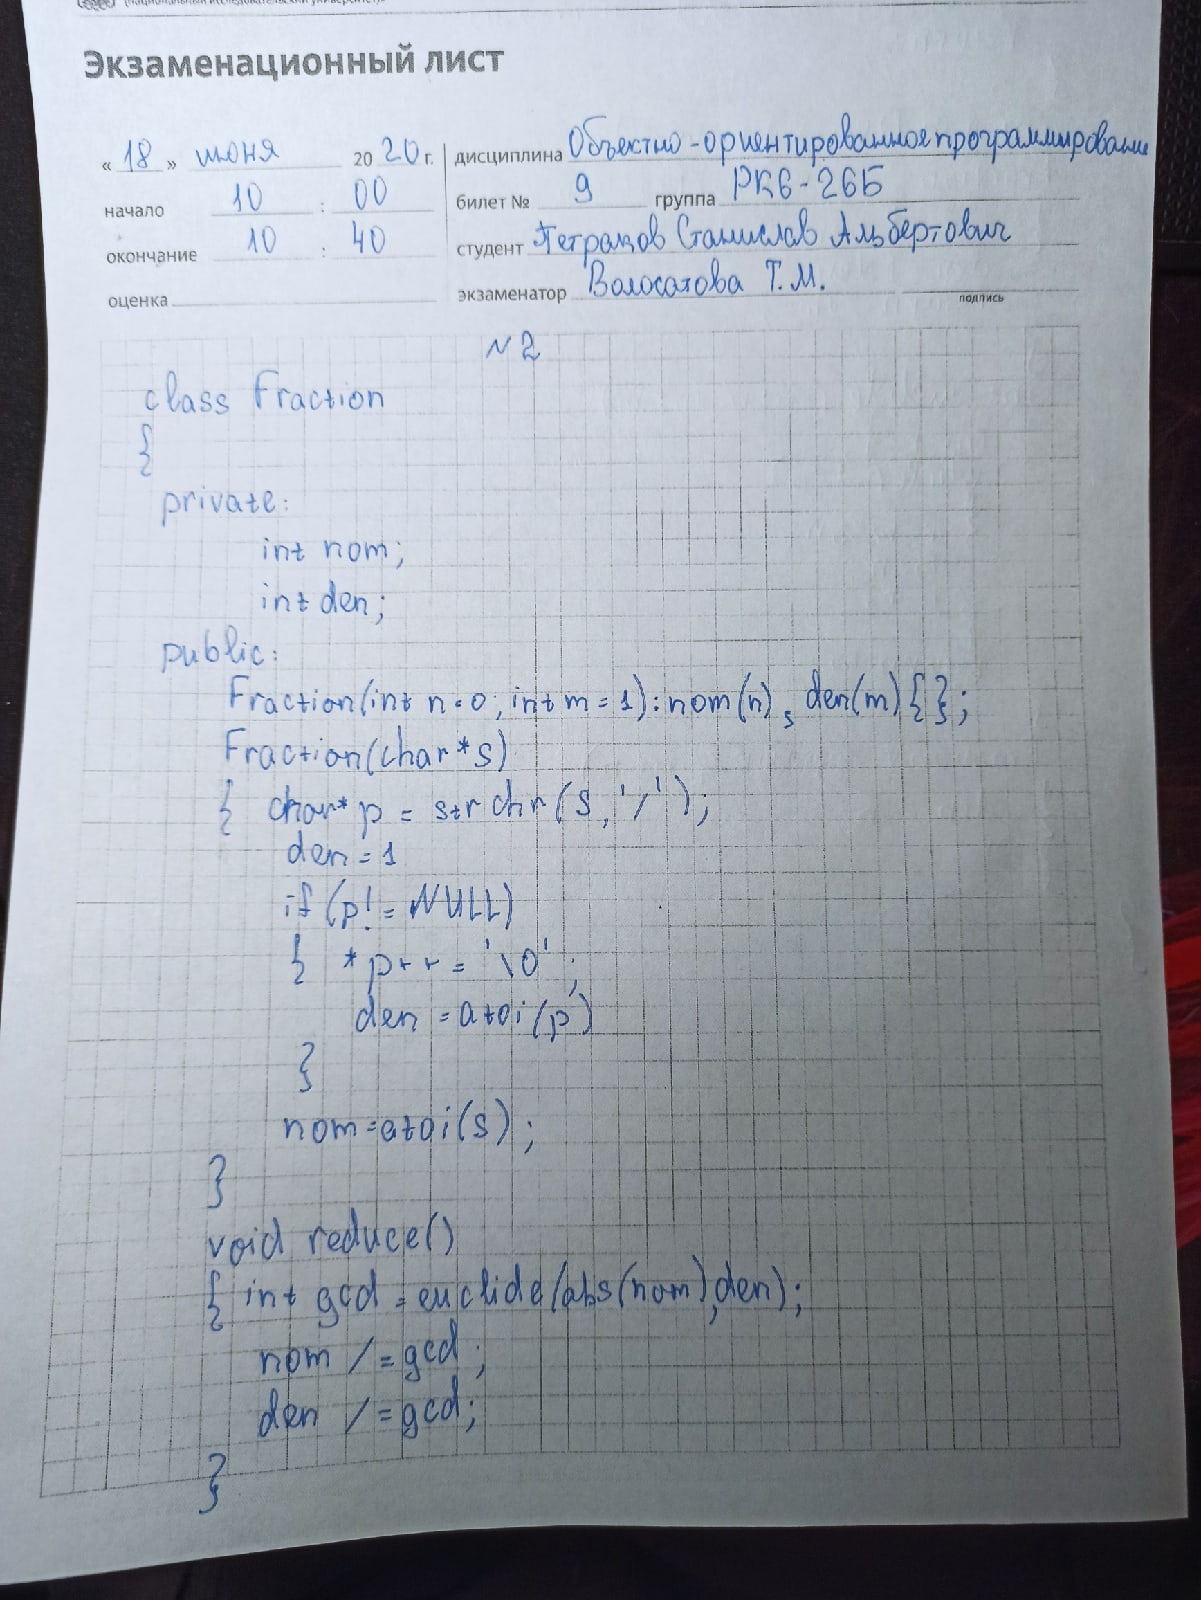 Экзаменационный лист
« 18 » июня 20 20 г. дисциплина Объектно-ориентированное программирование
начало 10 : 00 билет № 9 группа РК6-26Б
окончание 10 : 40 студент Петраков Станислав Альбертович
оценка экзаменатор Волосатова Т.М.
подпись
N2
class Fraction
{
private:
int nom;
int den;
public:
Fraction(int n=0; int m=1):nom(n), den(m){};
Fraction(char*s)
{ char* p = strchr(s,'/');
den=1
if (p!=NULL)
{ *p++='\0';
den=atoi(p)
}
nom=atoi(s);
}
void reduce()
{ int gcd=euclide(abs(nom),den);
nom /=gcd;
den /=gcd;
}